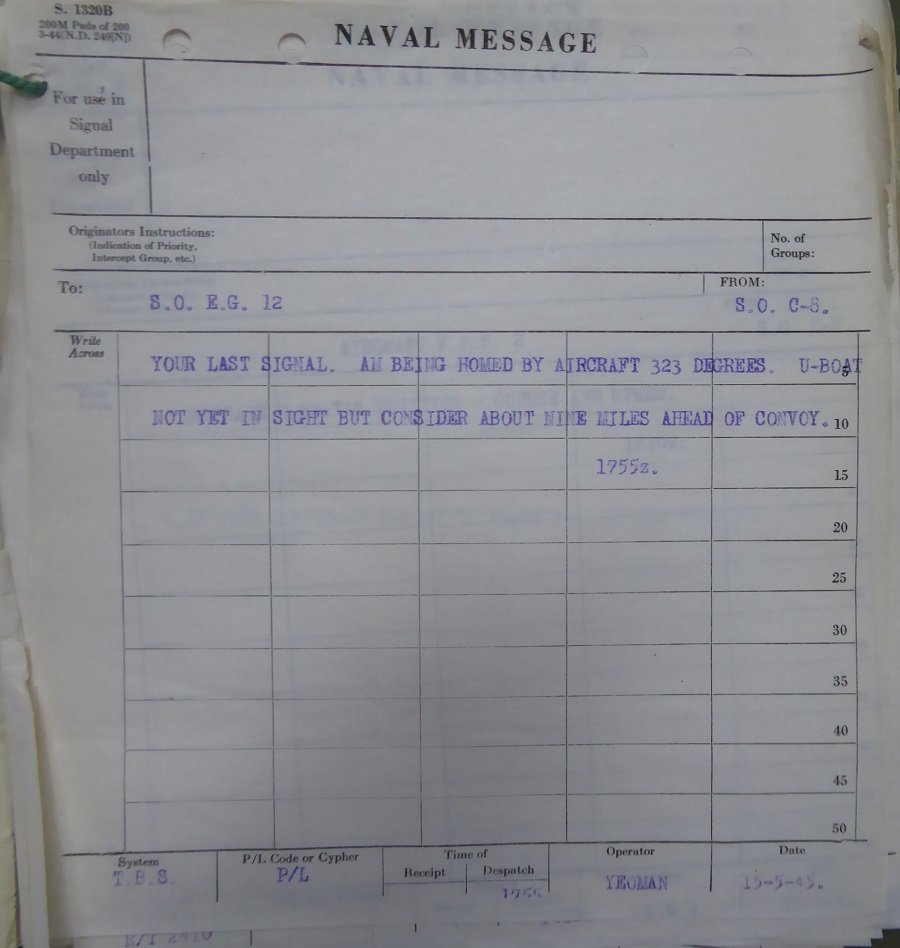 S. 1320B
200M Pads of 200
3-44(N.D. 249[N])
NAVAL MESSAGE
For use in
Signal
Department
only
Originators Instructions:
(Indication of Priority,
Intercept Group, etc.)
No. of
Groups:
To:
S.O. E.G. 12
FROM:
S.O. C-8.
Write
Across
YOUR LAST SIGNAL. AM BEING HOMED BY AIRCRAFT 323 DEGREES. U-BOAT
5
NOT YET IN SIGHT BUT CONSIDER ABOUT NINE MILES AHEAD OF CONVOY. 10
1755z.
15
20
25
30
35
40
45
50
System
P/L Code or Cypher
Time of
Receipt
Despatch
Operator
Date
T.B.S.
P/L
YEOMAN
15-5-45.